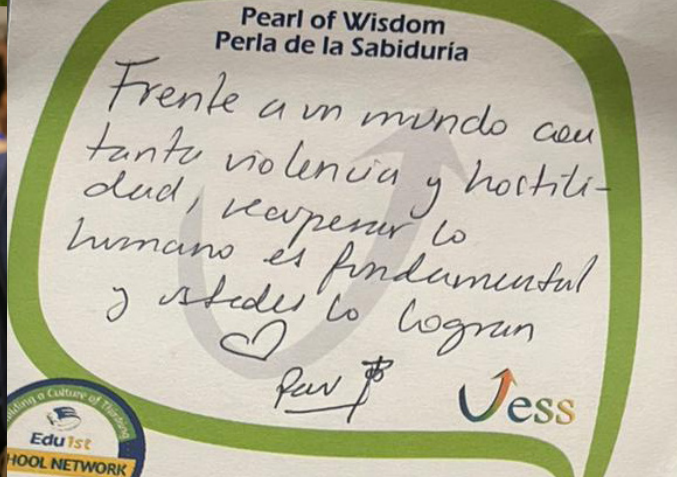 Pearl of Wisdom
Perla de la Sabiduría
Frente a un mundo con
tanta violencia y hostili-
dad, recuperar lo
humano es fundamental
y ustedes lo logran
Uess
Building a Culture of Thinking
Edu1st
HOOL NETWORK